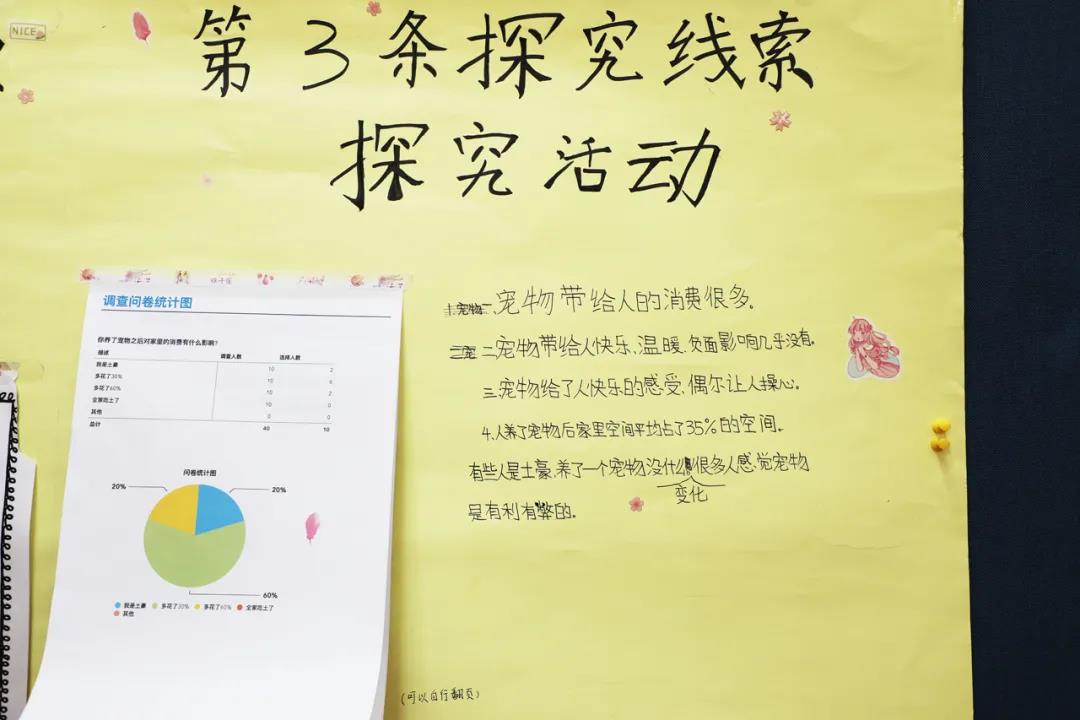 NICE
第3条探究线索
探究活动
调查问卷统计图
你养了宠物之后对家里的消费有什么影响?
描述 调查人数 选择人数
我是土豪 10 2
多花了30% 10 6
多花了60% 10 2
全家吃土了 10 0
其他 0 0
总计 40 10
问卷统计图
20% 20%
60%
我是土豪 多花了30% 多花了60% 全家吃土了
其他
宠物带给人的消费很多。
二宠物带给人快乐、温暖,负面影响几乎没有。
三.宠物给了人快乐的感受,偶尔让人操心。
4.人养了宠物后家里空间平均占了35%的空间。
有些人是土豪,养了一个宠物没什么变化很多人感觉宠物
是有利有弊的。
(可以自行翻页)